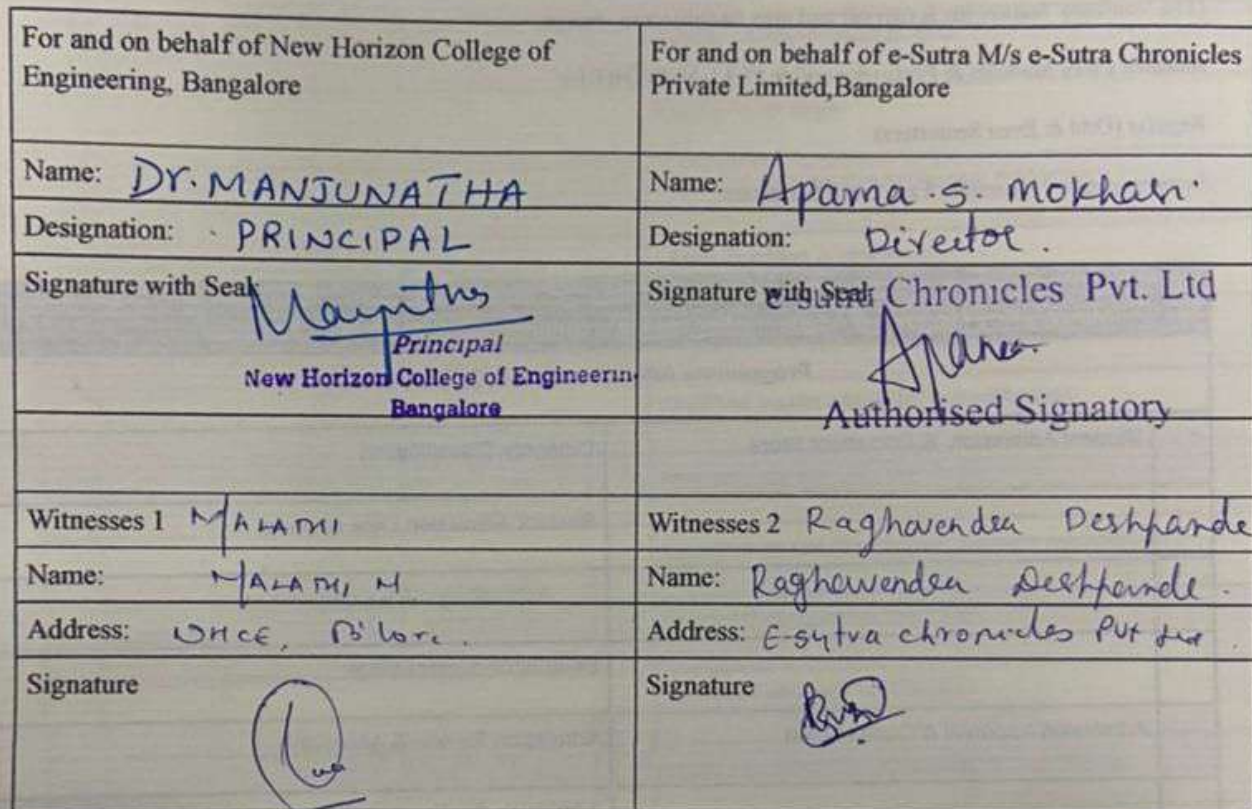 For and on behalf of New Horizon College of
Engineering, Bangalore
For and on behalf of e-Sutra M/s e-Sutra Chronicles
Private Limited,Bangalore
Name: Dr. MANJUNATHA
Name: Aparna .S. Mokhasi
Designation: PRINCIPAL
Designation: Director.
Signature with Seal
Principal
New Horizon College of Engineerin
Bangalore
Signature with Seal
e-sutra Chronicles Pvt. Ltd
Authorised Signatory
Witnesses 1 MALATHI
Witnesses 2 Raghavendra Deshpande
Name: MALATHI M
Name: Raghavendra Deshpande.
Address: NHCE, B'lore.
Address: E-sutra chronicles Pvt Ltd.
Signature
Signature